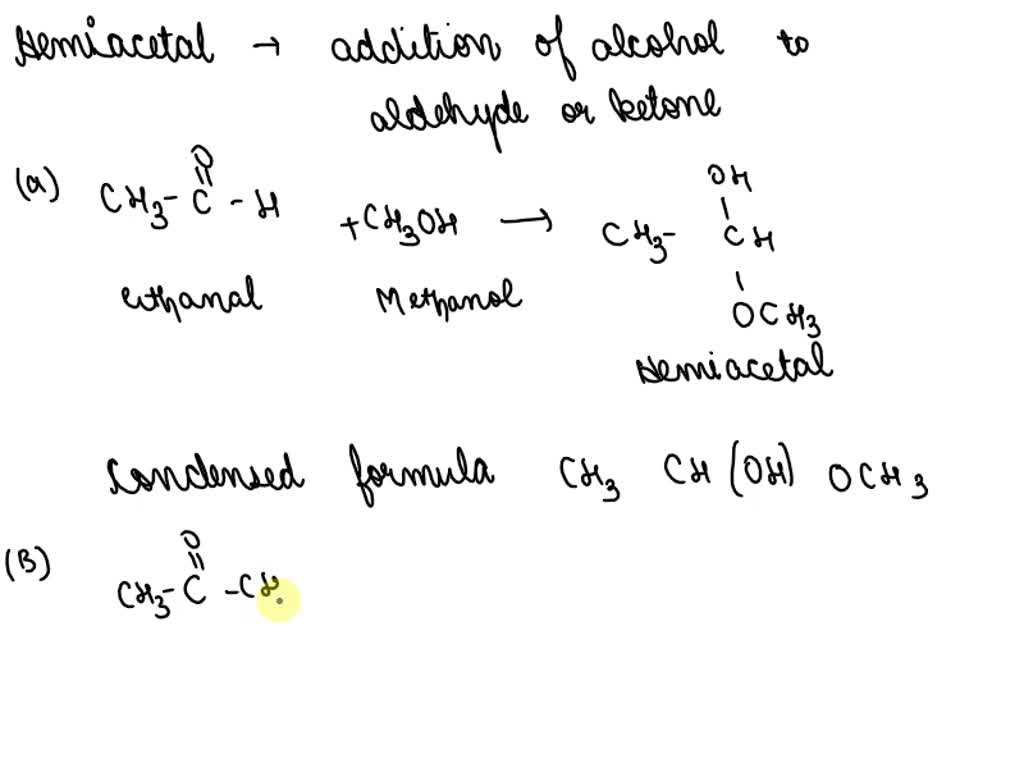 Hemiacetal → addition of alcohol to
aldehyde or ketone
(a) CH3- C - H + CH3OH → CH3- CH
O
OH
OCH3
Ethanal Methanol
Hemiacetal
Condensed formula CH3 CH (OH) OCH3
(B)
O
CH3- C - CH